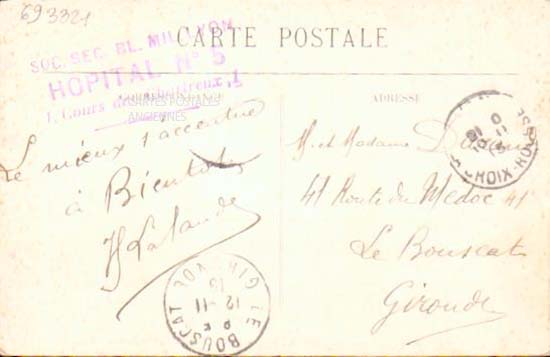 693321
CARTE POSTALE
SOC. SEC. BL. MIL. LYON
HOPITAL N° 5
1, Cours des Chartreux, 1
CARTES POSTALES
ANCIENNES
ADRESSE
Le mieux s'accentue
à Bientôt
H Lalande
M. et Madame
41 Route du Médoc 41
Le Bouscat
Gironde
CROIX-ROUSSE
LE BOUSCAT
12-11